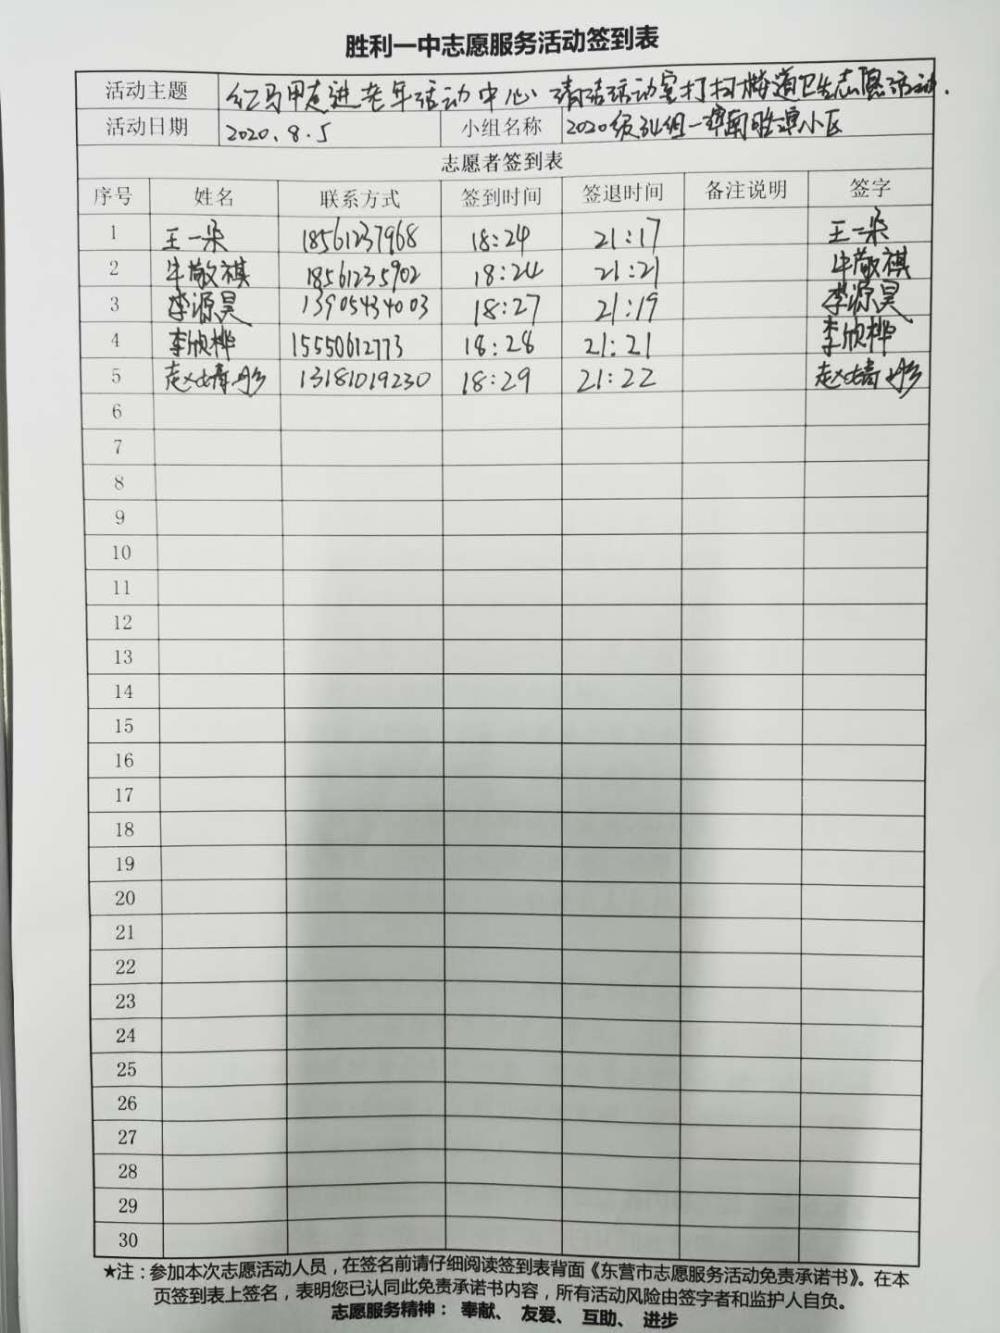 胜利一中志愿服务活动签到表
活动主题 红马甲走进老年活动中心 清洁活动室打扫楼道卫生志愿活动.
活动日期 2020.8.5 小组名称 2020级 小区
志愿者签到表
序号 姓名 联系方式 签到时间 签退时间 备注说明 签字
1 王一朵 18561237968 18:24 21:17 王一朵
2 牛敬祺 18561235902 18:24 21:21 牛敬祺
3 李源昊 13905434003 18:27 21:19 李源昊
4 李欣桦 15550612773 18:28 21:21 李欣桦
5 赵婧彤 13181019230 18:29 21:22 赵婧彤
6
7
8
9
10
11
12
13
14
15
16
17
18
19
20
21
22
23
24
25
26
27
28
29
30
★注：参加本次志愿活动人员，在签名前请仔细阅读签到表背面《东营市志愿服务活动免责承诺书》。在本
页签到表上签名，表明您已认同此免责承诺书内容，所有活动风险由签字者和监护人自负。
志愿服务精神： 奉献、 友爱、 互助、 进步